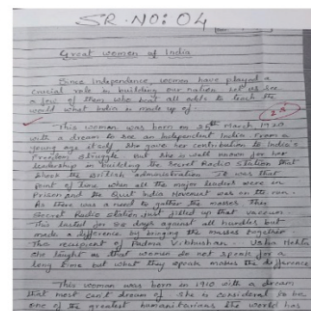 SR.NO: 04
Great women of India
Since independence, women have played a
crucial role in building our nation. Let us see
a few of them who beat all odds to teach the
world what India is made of.
This woman was born on 25th March, 1920
with a dream to see an Independent India from a
young age itself. She gave her contribution to India's
Freedom struggle. But she is well known for her
leadership in building the Secret Radio Station that
shook the British administration. It was that
point of time when all the major leaders were in
Prison and the Quit India Movement was on the run.
As there was a need to gather the masses this
Secret Radio Station just filled up that vacuum.
This lasted for
days against all hurdles but
made a difference by bringing the masses together
The recipient of Padma Vibhushan. Usha Mehta
She taught us that women do not speak for a
long time but what they speak makes the difference
This woman was born in 1910 with a dream
that most can't dream of. She is considered to be
one of the greatest humanitarians the world has